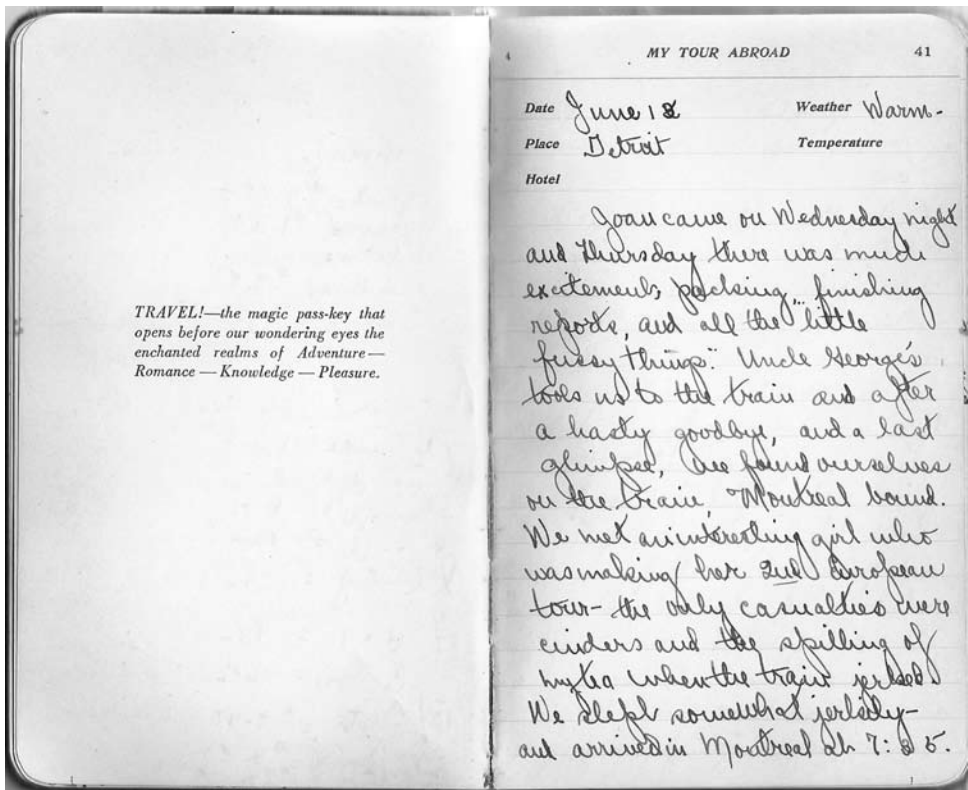 TRAVEL!—the magic pass-key that
opens before our wondering eyes the
enchanted realms of Adventure—
Romance — Knowledge — Pleasure.
MY TOUR ABROAD 41
Date June 18 Weather Warm-
Place Detroit Temperature
Hotel
Joan came on Wednesday night
and Thursday there was much
excitement, packing, finishing
reports, and all the "little
fussy things". Uncle George's
took us to the train and after
a hasty goodbye, and a last
glimpse, we found ourselves
on the train, Montreal bound.
We met an interesting girl who
was making her 2nd European
tour- the only casualties were
cinders and the spilling of
my tea when the train jerked.
We slept somewhat jerkily-
and arrived in Montreal at 7:35.